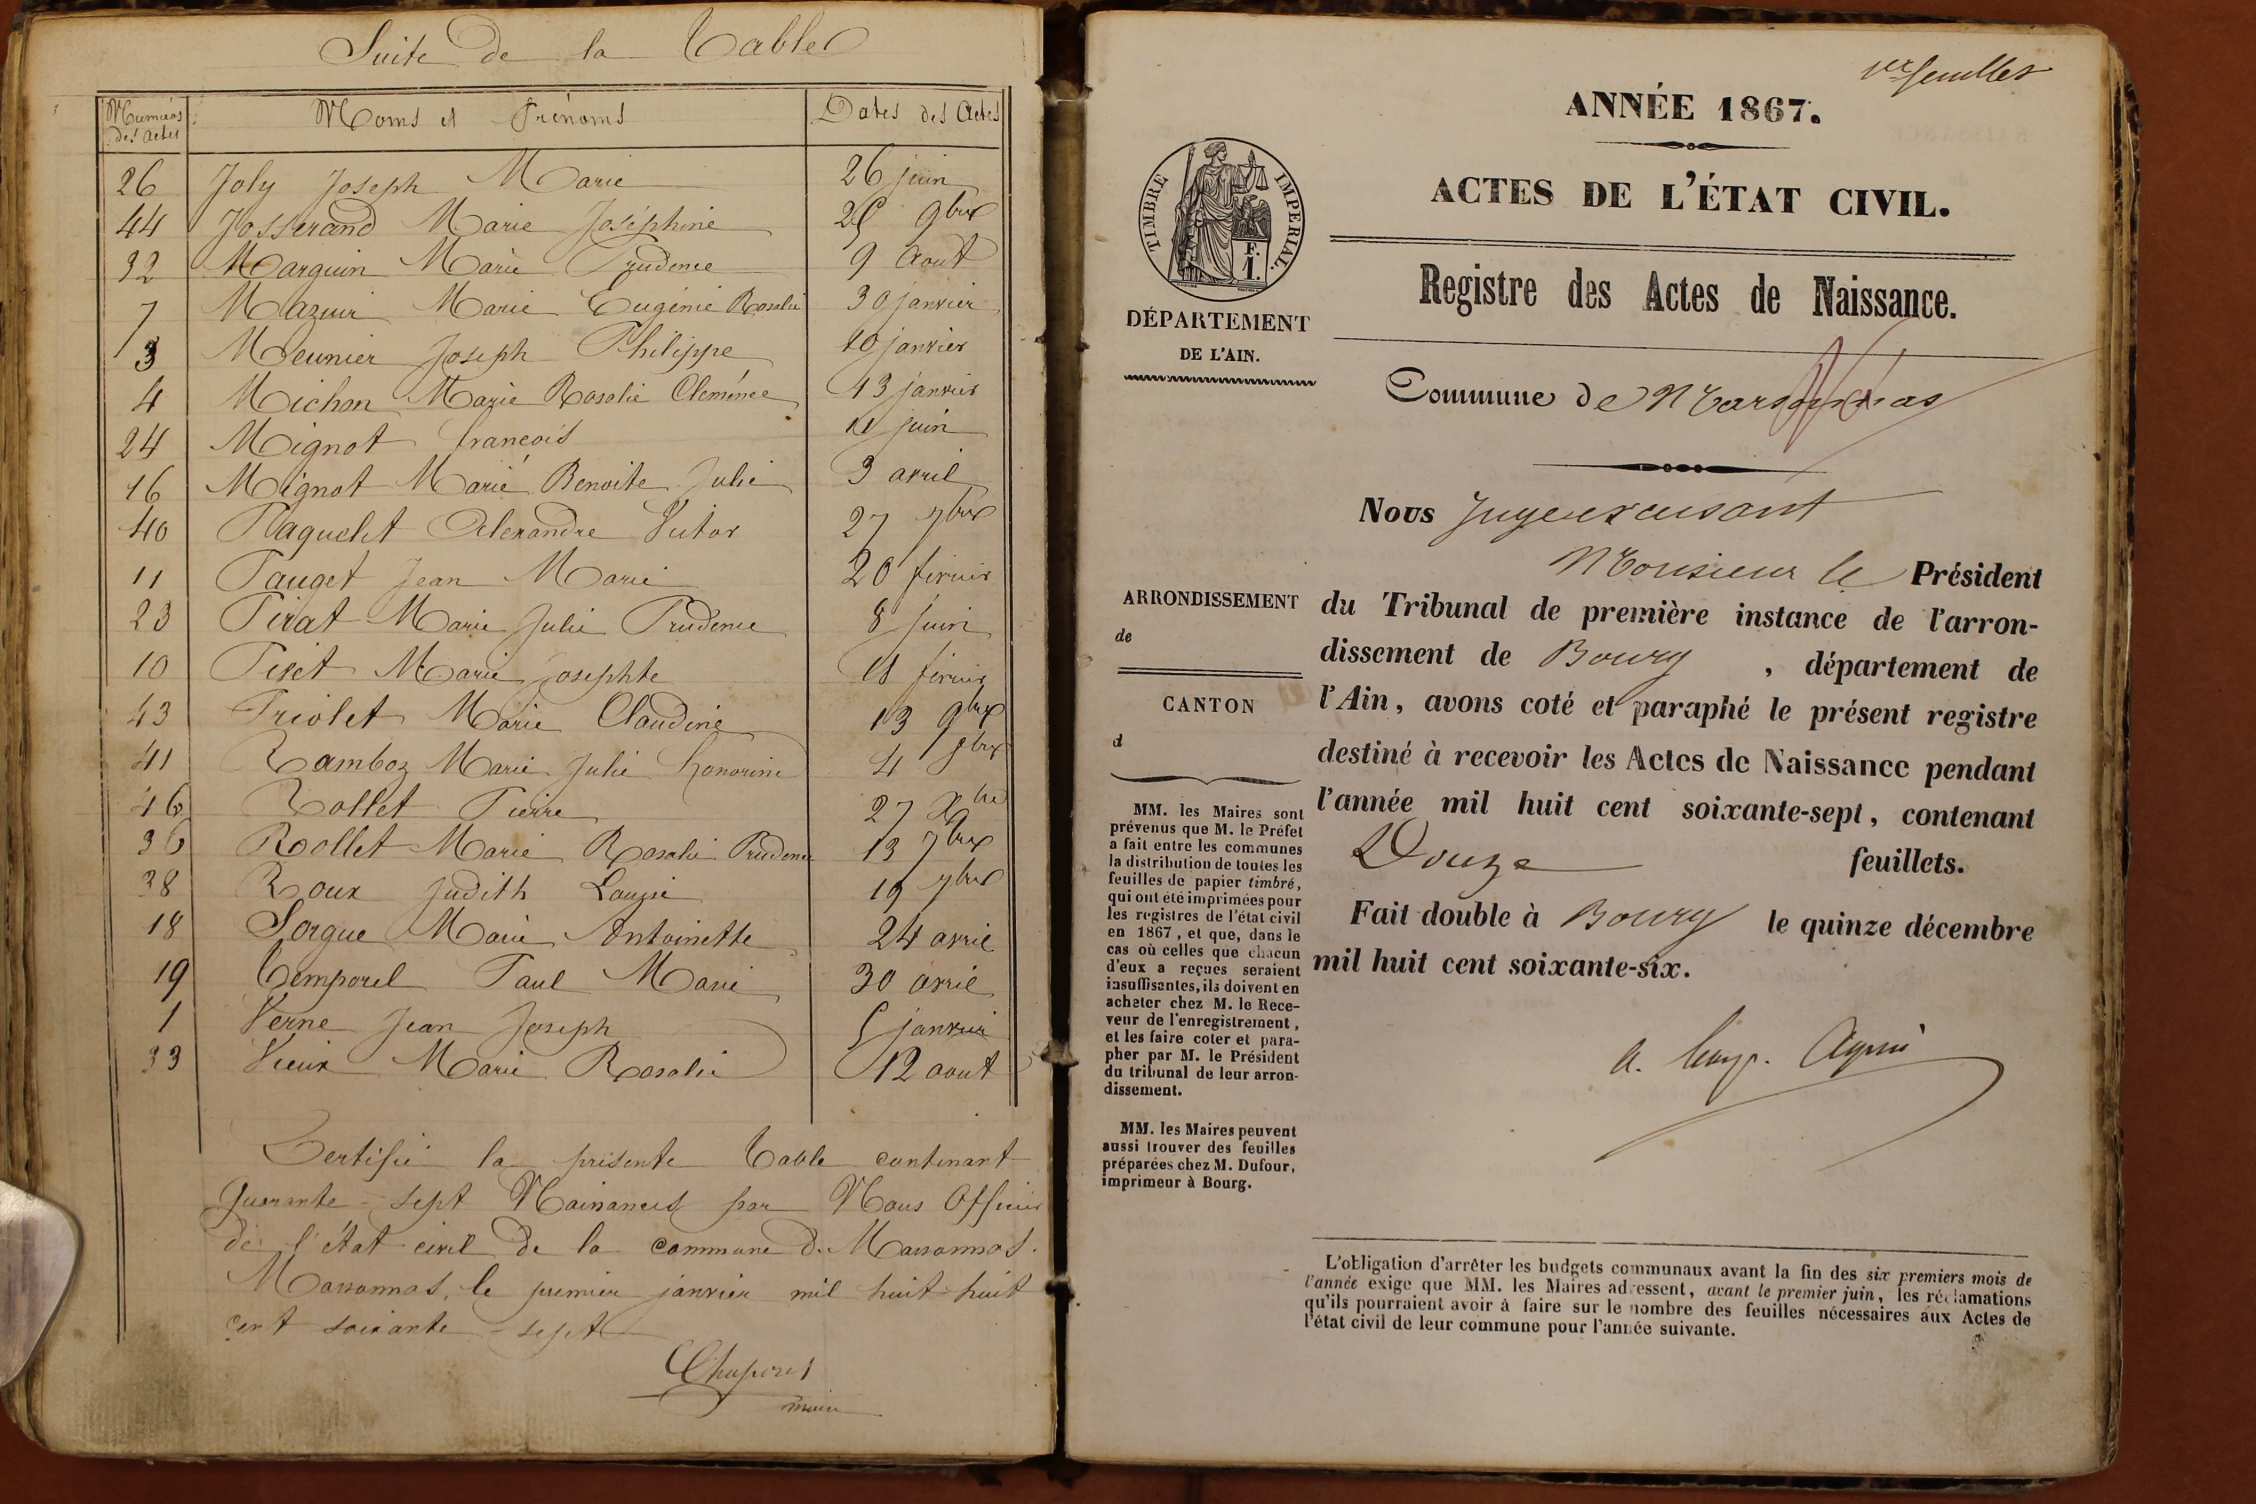 Suite de la Table
Numéros des actes Noms et Prénoms Dates des Actes
26 Joly Joseph Marie 26 juin
44 Josserand Marie Joséphine 25 9bre
32 Marguin Marie Prudence 9 Aout
7 Mazuir Marie Eugénie Rosalie 30 janvier
3 Meunier Joseph Philippe 10 janvier
4 Michon Marie Rosalie Clemence 13 janvier
24 Mignot francois 11 juin
16 Mignot Marie Benoite Julie 3 avril
40 Paquelet Alexandre Victor 27 7bre
11 Pauget Jean Marie 20 fevrier
23 Pirat Marie Julie Prudence 8 juin
10 Piset Marie josephte 18 fevrier
43 Priolet Marie Claudine 13 9bre
41 Ramboz Marie Julie honorine 4 8bre
46 Rollet Pierre 27 Xbre
36 Rollet Marie Rosalie Prudence 13 7bre
38 Roux Judith Louise 19 7bre
18 Sorgue Marie Antoinette 24 avril
19 Temporel Paul Marie 30 avril
1 Verne Jean Joseph 5 janvier
33 Vieux Marie Rosalie 12 aout
Certifié la présente Table contenant
quarante-sept Naissances par Nous Officier
de l'état civil de la commune de Marsonnas.
Marsonnas, le premier janvier mil huit huit
cent soixante-sept
maire
1er feuillet
ANNÉE 1867.
ACTES DE L'ÉTAT CIVIL.
TIMBRE IMPERIAL.
F.
1.
DÉPARTEMENT
DE L'AIN.
Registre des Actes de Naissance.
Commune de Marsonnas
Nous Juge excusant
Monsieur le Président
du Tribunal de première instance de l'arron-
dissement de Bourg, département de
l'Ain, avons coté et paraphé le présent registre
destiné à recevoir les Actes de Naissance pendant
l'année mil huit cent soixante-sept, contenant
Douze feuillets.
Fait double à Bourg le quinze décembre
mil huit cent soixante-six.
ARRONDISSEMENT
de
CANTON
d
MM. les Maires sont
prévenus que M. le Préfet
a fait entre les communes
la distribution de toutes les
feuilles de papier timbré,
qui ont été imprimées pour
les registres de l'état civil
en 1867, et que, dans le
cas où celles que chacun
d'eux a reçues seraient
insuffisantes, ils doivent en
acheter chez M. le Rece-
veur de l'enregistrement,
et les faire coter et para-
pher par M. le Président
du tribunal de leur arron-
dissement.
MM. les Maires peuvent
aussi trouver des feuilles
préparées chez M. Dufour,
imprimeur à Bourg.
L'obligation d'arrêter les budgets communaux avant la fin des six premiers mois de
l'année exige que MM. les Maires adressent, avant le premier juin, les réclamations
qu'ils pourraient avoir à faire sur le nombre des feuilles nécessaires aux Actes de
l'état civil de leur commune pour l'année suivante.